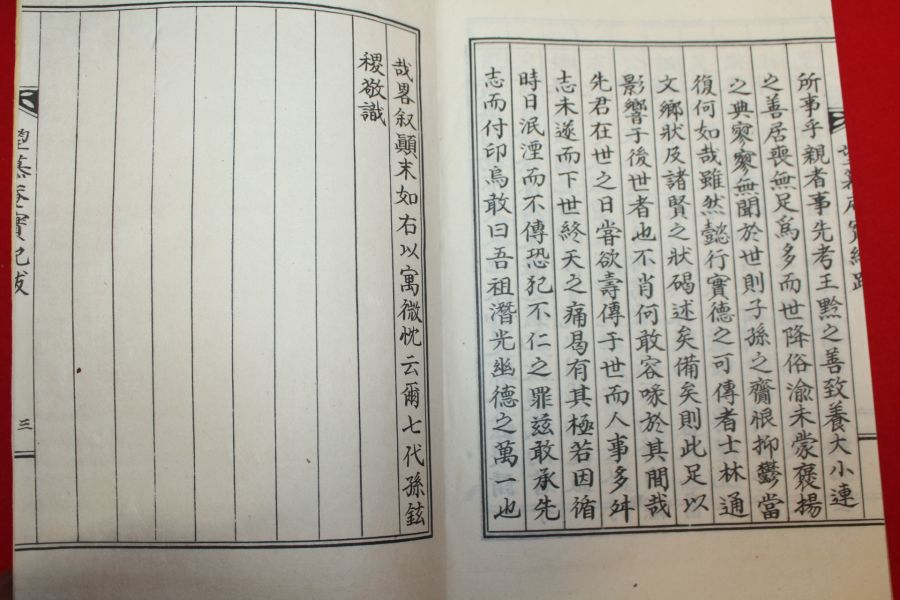 所事乎親者事先考王黔之善致養大小連
之善居喪無足爲多而世降俗渝未蒙褒揚
之典寥寥無聞於世則子孫之齎恨抑鬱當
復何如哉雖然懿行實德之可傳者士林通
文鄉狀及諸賢之狀碣述矣備矣則此足以
影響于後世者也不肖何敢容喙於其間哉
先君在世之日嘗欲壽傳于世而人事多舛
志未遂而下世終天之痛曷有其極若因循
時日泯湮而不傳恐犯不仁之罪玆敢承先
志而付印烏敢曰吾祖潛光幽德之萬一也
哉畧叙顚末如右以寓微忱云爾七代孫鉉
稷敬識
望慕齋實記跋
三